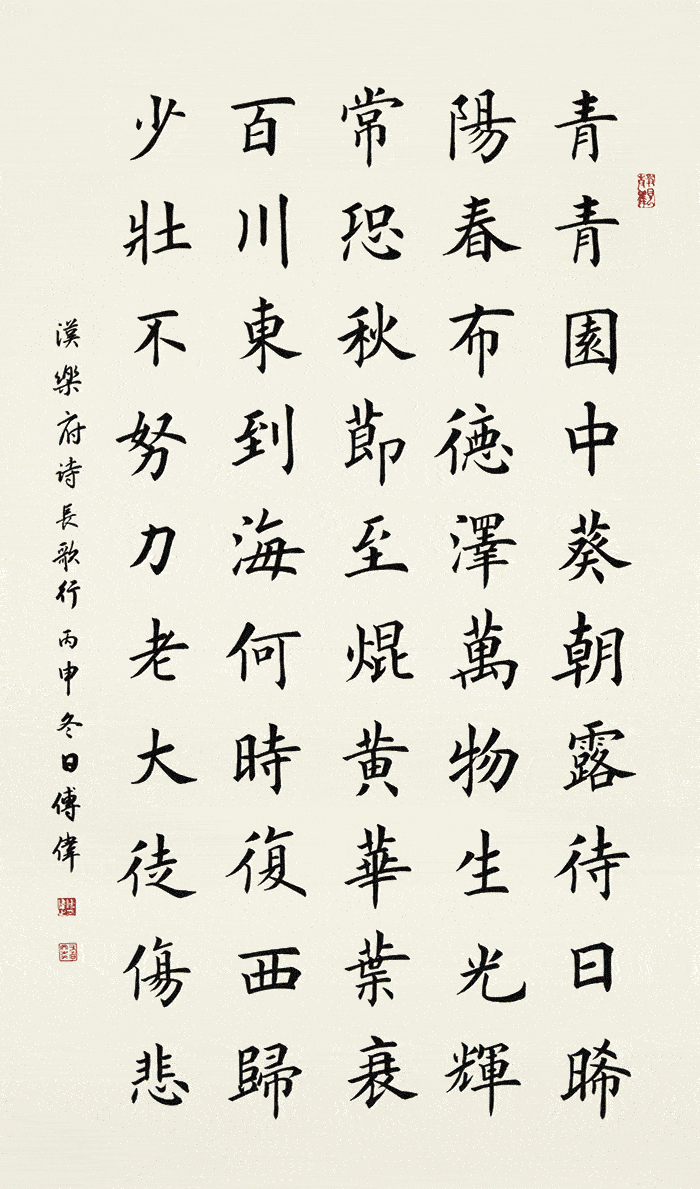 青青園中葵朝露待日晞
陽春布德澤萬物生光輝
常恐秋節至焜黄華葉衰
百川東到海何時復西歸
少壯不努力老大徒傷悲
漢樂府诗長歌行丙申冬日傅偉